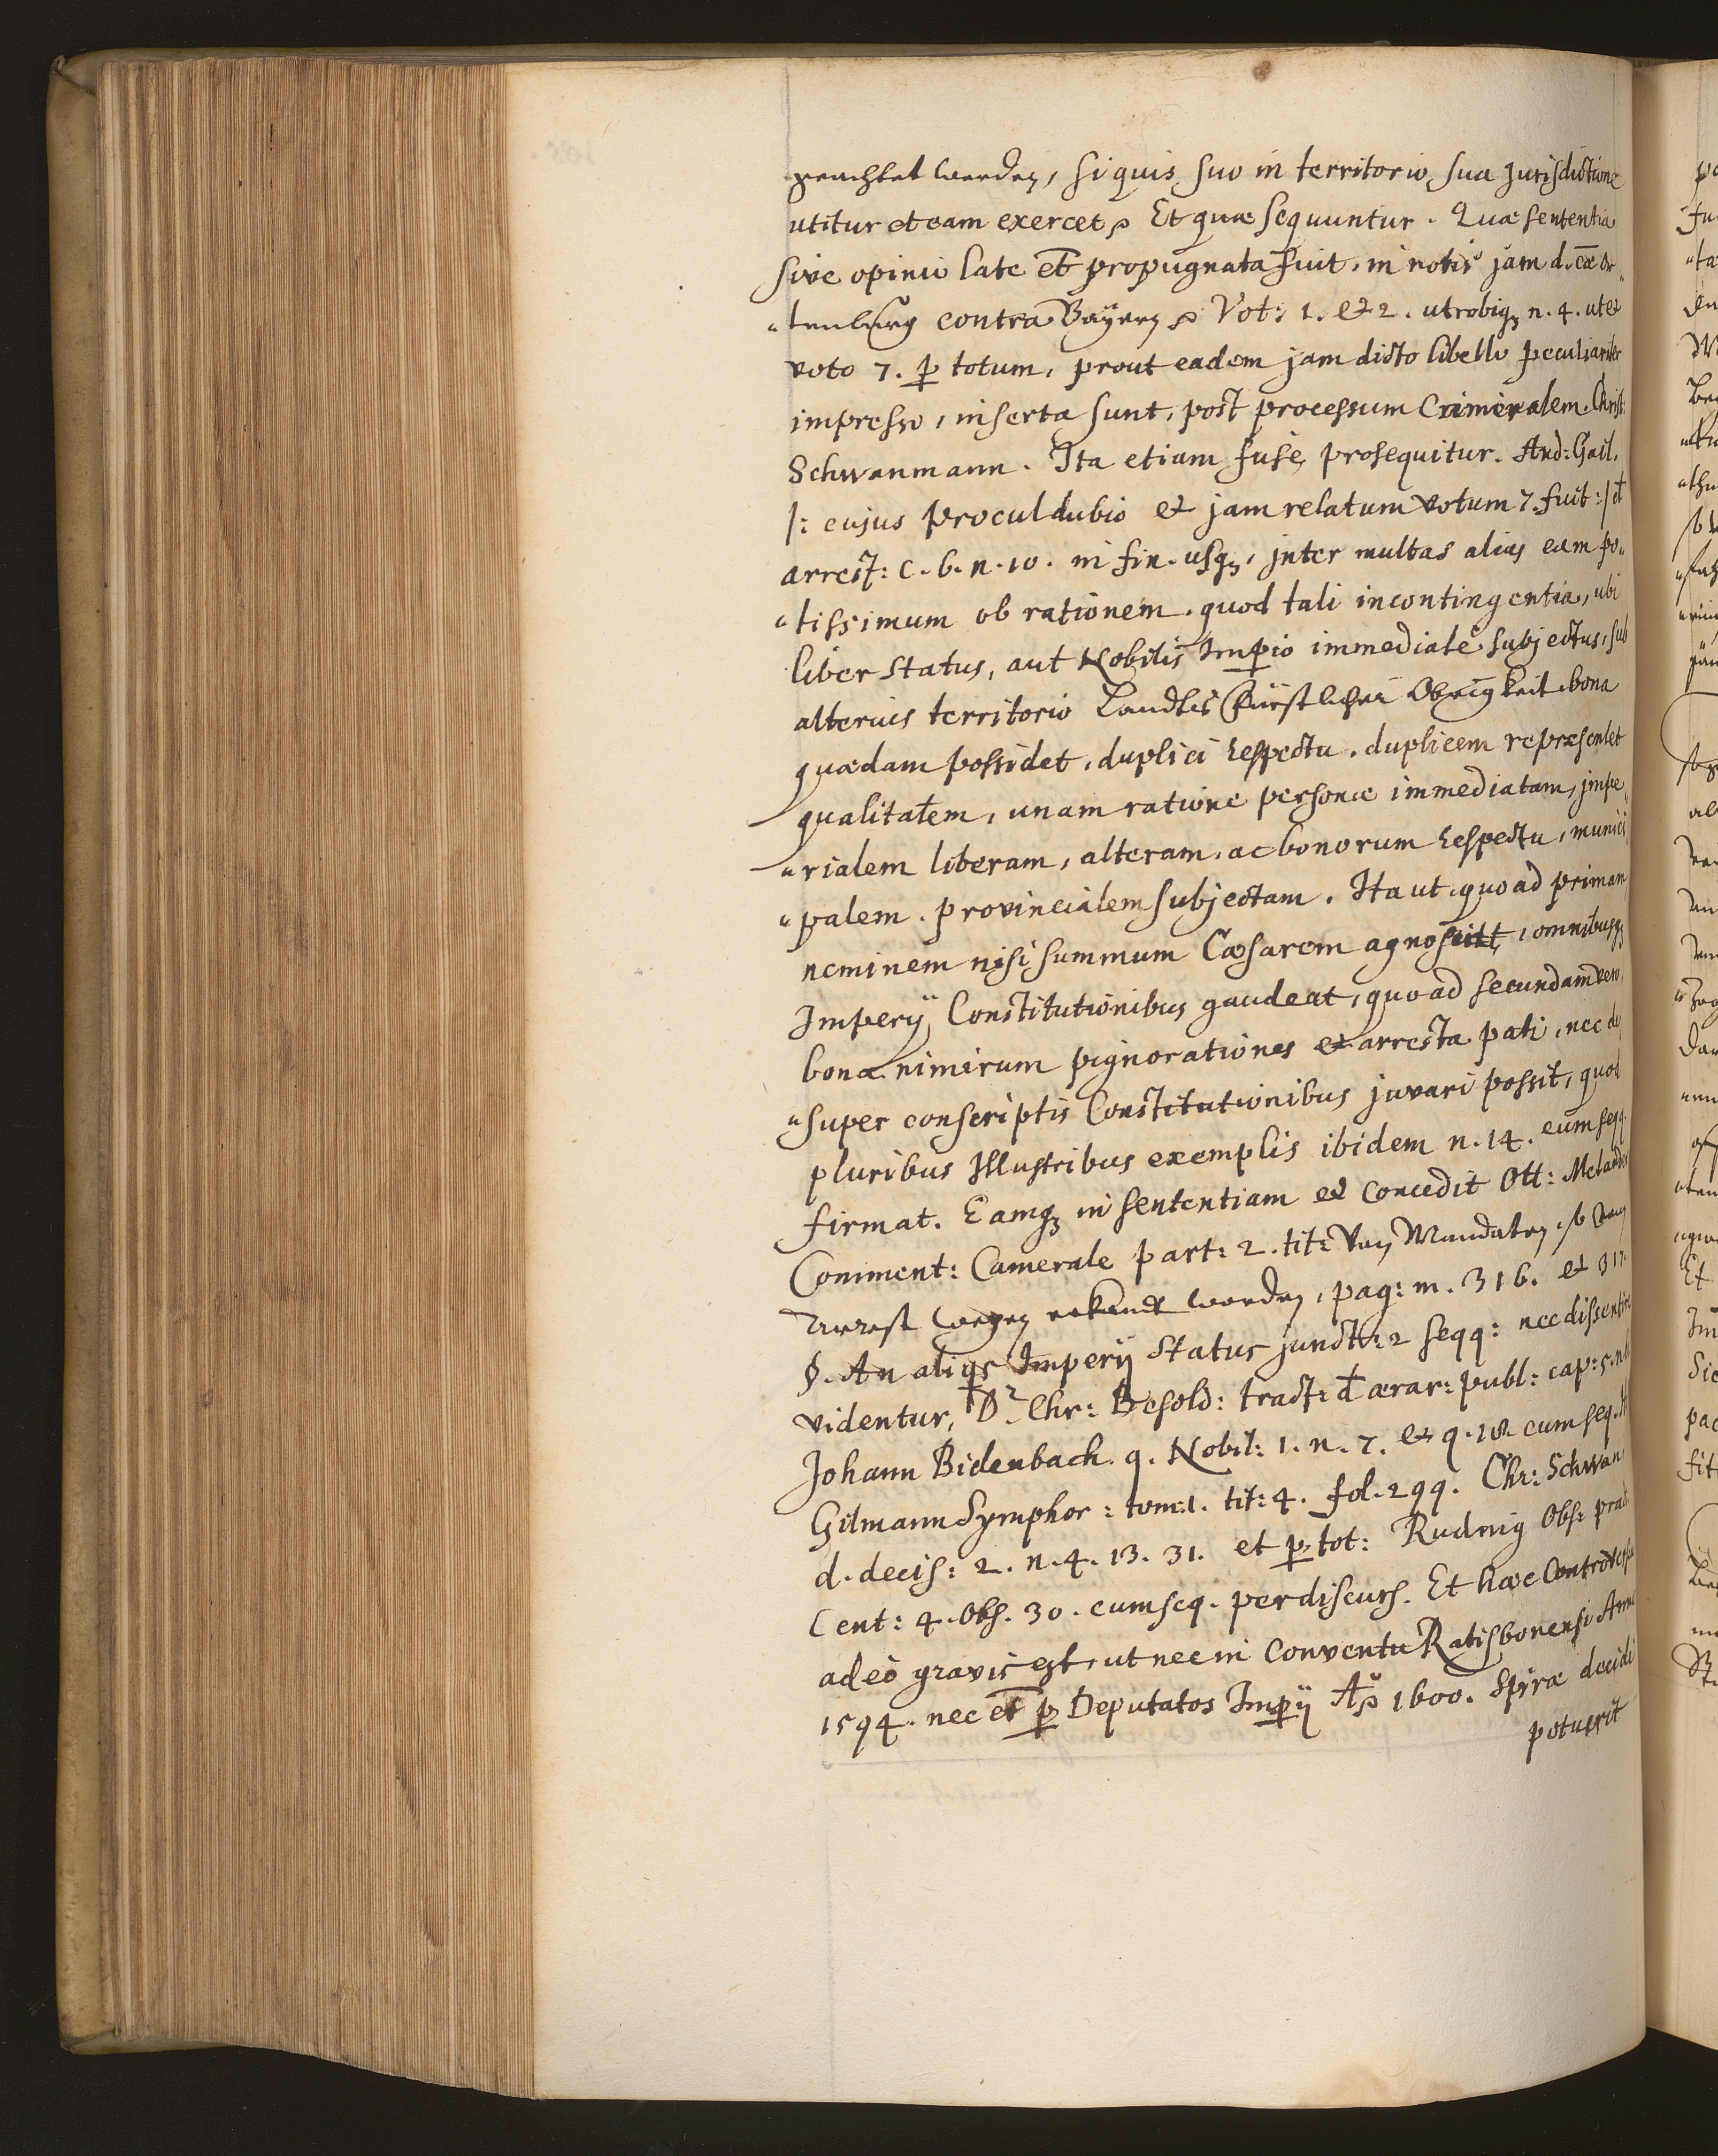 geachtet werden, si quis suo in territorio, sua Jurisdictione
utitur et eam exercet p Et quæ sequuntur. Quæ sententia
sive opinio late et propugnata fuit, in notis jam d. cæ Or„
„tenburg contra Bayern p Vot: 1. et 2. utrobiq₃ n. 4. ut et
voto 7. p totum, prout eadem jam dicto libello peculiariter
impresso, inserta sunt, post processum Criminalem. Christ:
Schwanmann. Ita etiam fusè prosequitur. And: Gail.
|: cujus procul dubio et jam relatum votum 7. fuit :| d
arrest: c. 6. n. 10. in fin. usq₃, inter multas alias eam po„
„tissimum ob rationem. quod tali in contingentia, ubi
liber status, aut Nobilis Impio immediatè subjectus, sub
alterius territorio Landts Fürstlicher Obrigkeit bona
quædam possidet, duplici respectu. duplicem repræsentet
qualitatem, unam ratione personæ immediatam, impe„
„rialem liberam, alteram, ac bonorum respectu, munici
„palem. provincialem subjectam. Ita ut quo ad primam
neminem nisi summum Cæsarem agnoscit, omnibusq₃
Imperij Constitutionibus gaudeat, quo ad secundam vero
bona nimirum pignorationes et arresta pati, nec de„
„super conscriptis Constitutionibus juvari possit, quod
pluribus Illustribus exemplis ibidem n. 14. cum seqq.
firmat. Eamq₃ in sententiam et concedit Ott: Meland
Comment: Camerale part: 2. tit: Von Mandaten, so
Arrest wegen erkandt werden, pag: m. 316. et 317.
§. An aliqs Imperij Status juncto 2 seqq: nec dissentire
videntur, D. Chr: Besold: tract: d ærar: publ: cap: 5. n.
Johann Bidenbach. q. Nobil: 1. n. 7. et q. 18. cum seq.
Gilmann Symphor: tom: 1. tit: 4. fol. 299. Chr: Schwan
d. decis: 2. n. 4. 13. 31. et p tot: Rudnig Obs: pract
Cent: 4. Obs. 30. cum seq. per discurs. Et hæc Controversia
adeò gravis est, ut nec in Conventu Ratisbonensi Anno
1594. nec et p Deputatos Impij Ao 1600. Spiræ decidi
potuerit